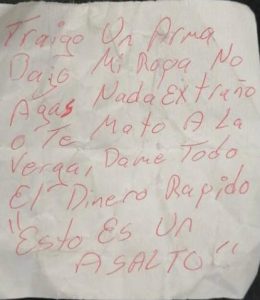 Traigo Un Arma
Bajo Mi Ropa No
Agas Nada Extraño
o Te Mato A La
Verga, Dame Todo
El Dinero Rapido
"Esto Es Un
ASALTO"